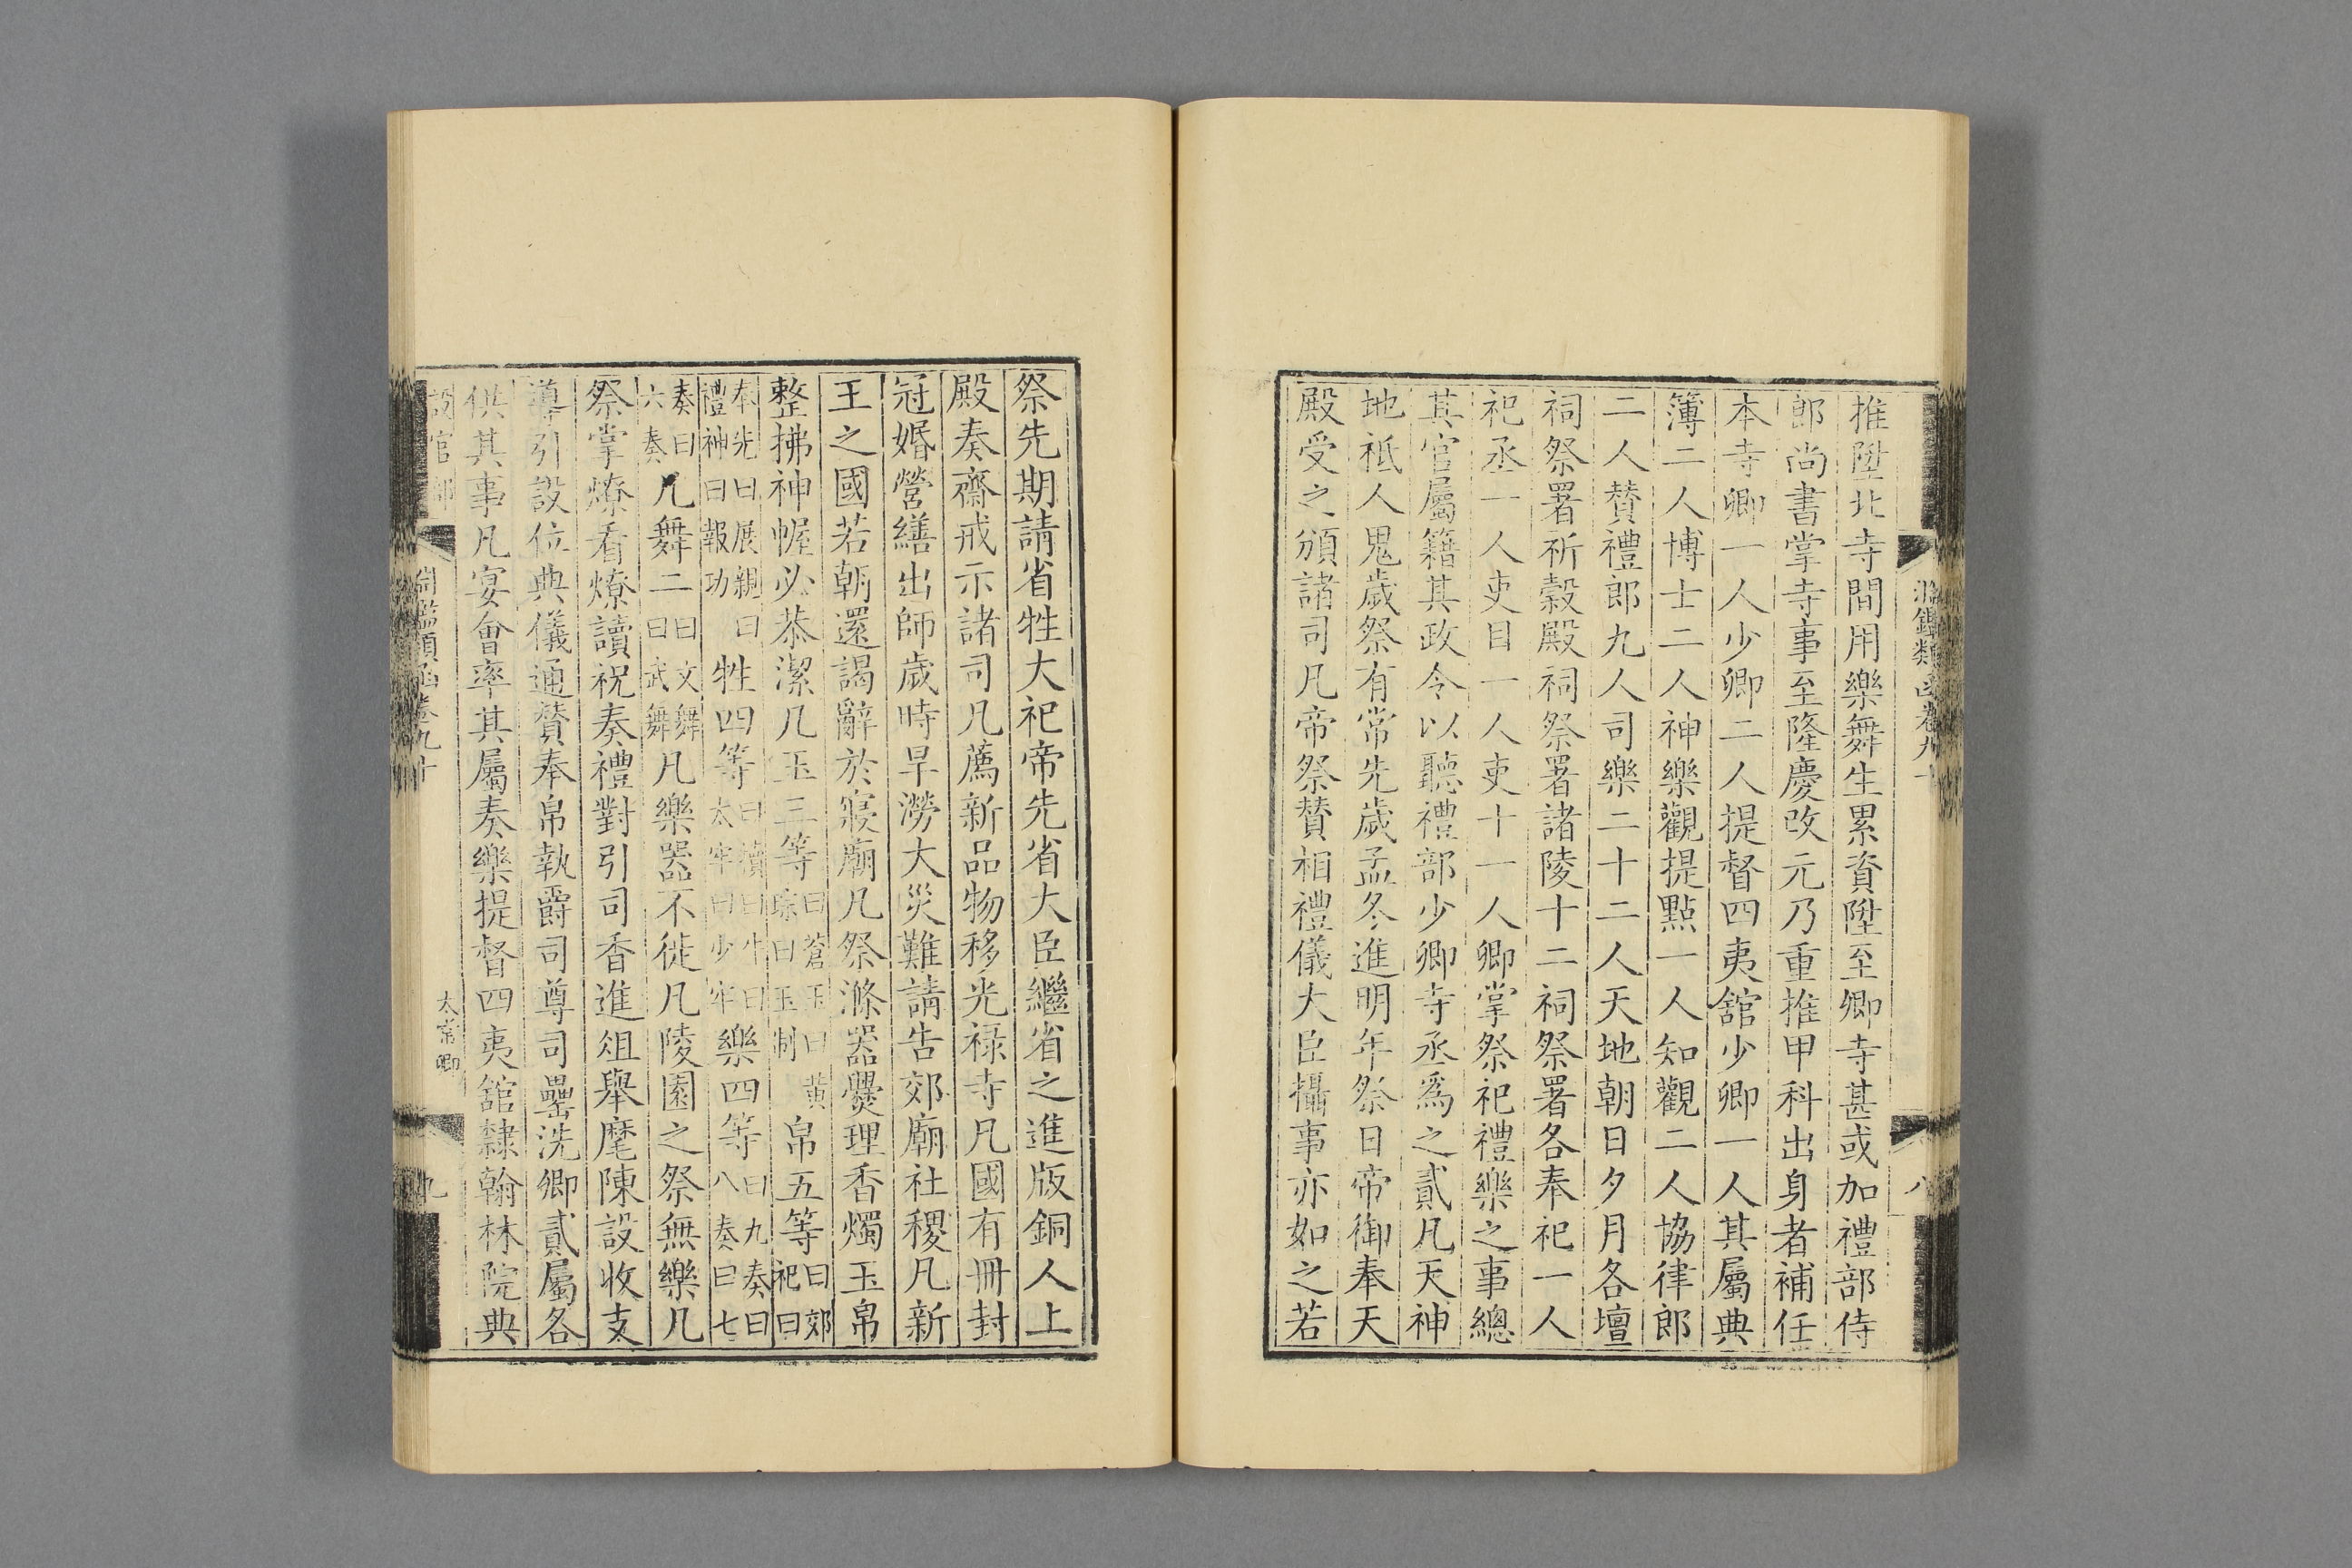 推陞北寺間用樂舞生累資陞至卿寺甚或加禮部侍
郎尚書掌寺事至隆慶改元乃重推甲科出身者補任
本寺卿一人少卿二人提督四夷舘少卿一人其屬典
簿二人博士二人神樂觀提點一人知觀二人協律郎
二人贊禮郎九人司樂二十二人天地朝日夕月各壇
祠祭署祈穀殿祠祭署諸陵十二祠祭署各奉祀一人
祀丞一人吏目一人吏十一人卿掌祭祀禮樂之事總
其官屬籍其政令以聽禮部少卿寺丞爲之貳凡天神
地祗人鬼歲祭有常先歲孟冬進明年祭日帝御奉天
殿受之頒諸司凡帝祭贊相禮儀大臣攝事亦如之若
淵鑑類函卷九十
八
祭先期請省牲大祀帝先省大臣繼省之進版銅人上
殿奏齋戒示諸司凡薦新品物移光禄寺凡國有冊封
冠婚營繕出師歲時旱澇大災難請告郊廟社稷凡新
王之國若朝還謁辭於寢廟凡祭滌器爨理香燭玉帛
整拂神幄必恭潔凡玉三等曰蒼玉曰黃琮曰玉制帛五等曰郊祀曰
奉先曰展親曰禮神曰報功牲四等曰犢曰牛曰太牢曰少牢樂四等曰九奏曰八奏曰七
奏曰六奏凡舞二曰文舞曰武舞凡樂器不徙凡陵園之祭無樂凡
祭掌燎看燎讀祝奏禮對引司香進俎舉麾陳設收支
導引設位典儀通贊奉帛執爵司尊司罍洗卿貳屬各
供其事凡宴會率其屬奏樂提督四夷舘隸翰林院典
設官部
淵鑑類函卷九十
太常卿
九